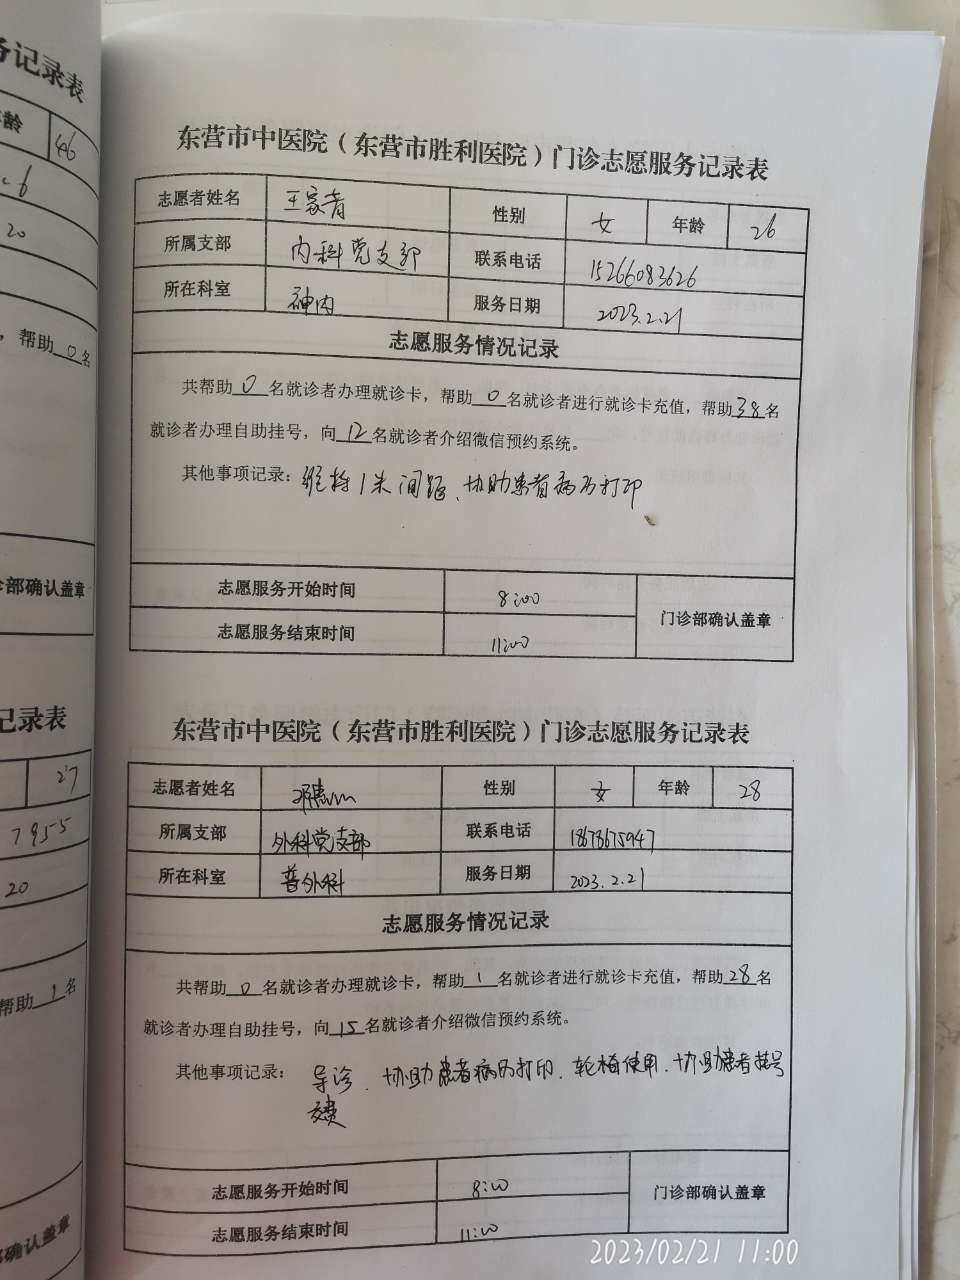 务记录表
年龄 46
6
20
，帮助 0 名
诊部确认盖章
记录表
27
7955
20
帮助 1 名
部确认盖章
东营市中医院（东营市胜利医院）门诊志愿服务记录表
志愿者姓名 王家青 性别 女 年龄 26
所属支部 内科党支部 联系电话 15266083626
所在科室 神内 服务日期 2023.2.21
志愿服务情况记录
共帮助 0 名就诊者办理就诊卡，帮助 0 名就诊者进行就诊卡充值，帮助 38 名
就诊者办理自助挂号，向 12 名就诊者介绍微信预约系统。
其他事项记录：维持1米间距、协助患者病历打印
志愿服务开始时间 8:00
门诊部确认盖章
志愿服务结束时间 11:00
东营市中医院（东营市胜利医院）门诊志愿服务记录表
志愿者姓名 性别 女 年龄 28
所属支部 外科党支部 联系电话 18678675947
所在科室 普外科 服务日期 2023.2.21
志愿服务情况记录
共帮助 0 名就诊者办理就诊卡，帮助 1 名就诊者进行就诊卡充值，帮助 28 名
就诊者办理自助挂号，向 15 名就诊者介绍微信预约系统。
其他事项记录：导诊、协助患者病历打印、轮椅使用、协助患者挂号
缴费
志愿服务开始时间 8:00
门诊部确认盖章
志愿服务结束时间 11:00
2023/02/21 11:00